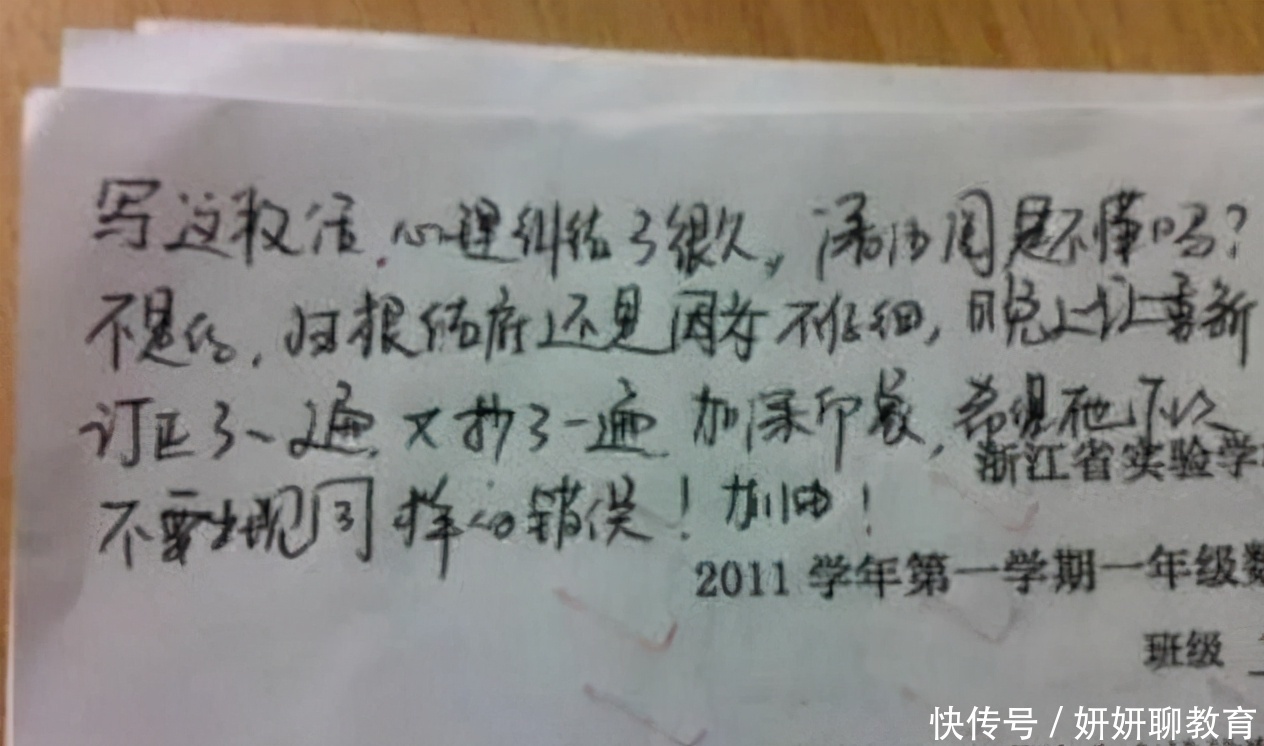 写这段话,心理纠结了很久,满的周是不懂吗?
不是的,归根结底还是因为不仔细,晚上让重新
订正了一遍,又抄了一遍 加深印象,希望他下次
不要出现同样的错误!加油!
浙江省实验学
2011 学年第一学期一年级数
班级
快传号 / 妍妍聊教育